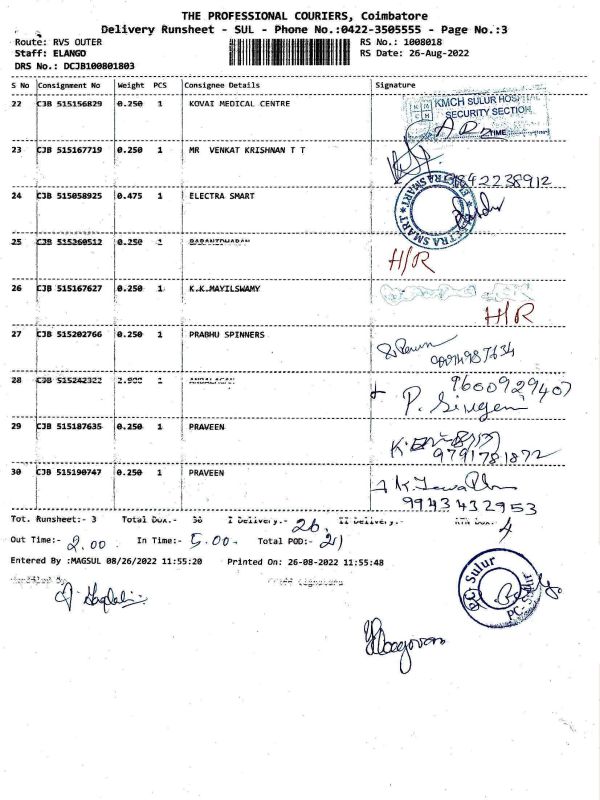 THE PROFESSIONAL COURIERS, Coimbatore
Delivery Runsheet - SUL - Phone No.:0422-3505555 - Page No.:3
Route: RVS OUTER RS No.: 1008018
Staff: ELANGO RS Date: 26-Aug-2022
DRS No.: DCJB100801803
S No Consignment No Weight PCS Consignee Details Signature
22 CJB 515156829 0.250 1 KOVAI MEDICAL CENTRE
KMCH SULUR HOSPITAL
SECURITY SECTION
TIME
23 CJB 515167719 0.250 1 MR VENKAT KRISHNAN T T
9842238912
24 CJB 515058925 0.475 1 ELECTRA SMART
ELECTRA SMART
25 CJB 515260512 0.250 1 BARANIDHARAN
H/R
26 CJB 515167627 0.250 1 K.K.MAYILSWAMY
H/R
27 CJB 515202766 0.250 1 PRABHU SPINNERS
28 CJB 515242322 2.900 1 ANBALAGAN
9600929407
P.
29 CJB 515187635 0.250 1 PRAVEEN
9791781872
30 CJB 515190747 0.250 1 PRAVEEN
9943432953
Tot. Runsheet:- 3 Total Dox.- 30 I Delivery.- 26 II Delivery.- RTN Dox.- 4
Out Time:- 2.00 In Time:- 5.00 Total POD:- 21
Entered By :MAGSUL 08/26/2022 11:55:20 Printed On: 26-08-2022 11:55:48
PC Sulur
PC-Sulur